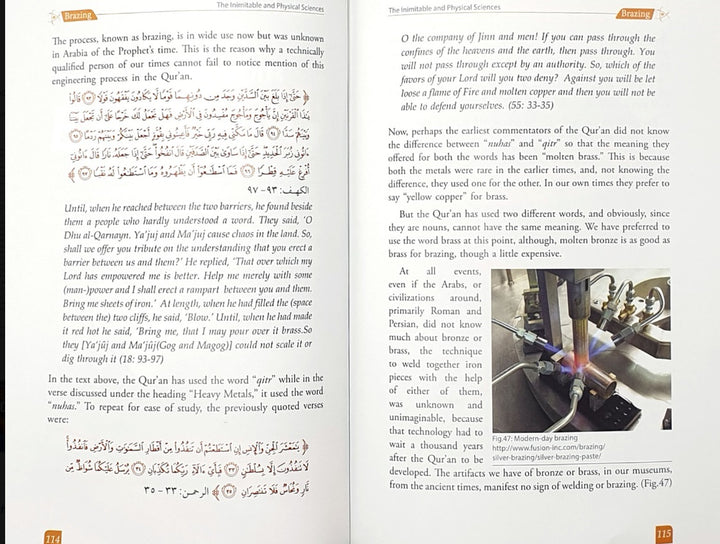 Brazing
The Inimitable and Physical Sciences
The process, known as brazing, is in wide use now but was unknown
in Arabia of the Prophet's time. This is the reason why a technically
qualified person of our times cannot fail to notice mention of this
engineering process in the Qur'an.
حَتَّىٰ إِذَا بَلَغَ بَيْنَ السَّدَّيْنِ وَجَدَ مِن دُونِهِمَا قَوْمًا لَّا يَكَادُونَ يَفْقَهُونَ قَوْلًا ﴿٩٣﴾ قَالُوا
يَا ذَا الْقَرْنَيْنِ إِنَّ يَأْجُوجَ وَمَأْجُوجَ مُفْسِدُونَ فِي الْأَرْضِ فَهَلْ نَجْعَلُ لَكَ خَرْجًا عَلَىٰ أَن تَجْعَلَ بَيْنَنَا
وَبَيْنَهُمْ سَدًّا ﴿٩٤﴾ قَالَ مَا مَكَّنِّي فِيهِ رَبِّي خَيْرٌ فَأَعِينُونِي بِقُوَّةٍ أَجْعَلْ بَيْنَكُمْ وَبَيْنَهُمْ رَدْمًا ﴿٩٥﴾
آتُونِي زُبَرَ الْحَدِيدِ حَتَّىٰ إِذَا سَاوَىٰ بَيْنَ الصَّدَفَيْنِ قَالَ انفُخُوا حَتَّىٰ إِذَا جَعَلَهُ نَارًا قَالَ آتُونِي
أُفْرِغْ عَلَيْهِ قِطْرًا ﴿٩٦﴾ فَمَا اسْطَاعُوا أَن يَظْهَرُوهُ وَمَا اسْتَطَاعُوا لَهُ نَقْبًا ﴿٩٧﴾
الكهف: ٩٣ - ٩٧
Until, when he reached between the two barriers, he found beside
them a people who hardly understood a word. They said, 'O
Dhu al-Qarnayn. Ya'juj and Ma'juj cause chaos in the land. So,
shall we offer you tribute on the understanding that you erect a
barrier between us and them?' He replied, 'That over which my
Lord has empowered me is better. Help me merely with some
(man-)power and I shall erect a rampart between you and them.
Bring me sheets of iron.' At length, when he had filled the (space
between the) two cliffs, he said, 'Blow.' Until, when he had made
it red hot he said, 'Bring me, that I may pour over it brass.So
they [Ya'jûj and Ma'jûj(Gog and Magog)] could not scale it or
dig through it (18: 93-97)
In the text above, the Qur'an has used the word "qitr" while in the
verse discussed under the heading "Heavy Metals," it used the word
"nuhas." To repeat for ease of study, the previously quoted verses
were:
يَا مَعْشَرَ الْجِنِّ وَالْإِنسِ إِنِ اسْتَطَعْتُمْ أَن تَنفُذُوا مِنْ أَقْطَارِ السَّمَاوَاتِ وَالْأَرْضِ فَانفُذُوا
لَا تَنفُذُونَ إِلَّا بِسُلْطَانٍ ﴿٣٣﴾ فَبِأَيِّ آلَاءِ رَبِّكُمَا تُكَذِّبَانِ ﴿٣٤﴾ يُرْسَلُ عَلَيْكُمَا شُوَاظٌ مِّن
نَّارٍ وَنُحَاسٌ فَلَا تَنتَصِرَانِ ﴿٣٥﴾ الرحمن: ٣٣ - ٣٥
114
The Inimitable and Physical Sciences
Brazing
O the company of Jinn and men! If you can pass through the
confines of the heavens and the earth, then pass through. You
will not pass through except by an authority. So, which of the
favors of your Lord will you two deny? Against you will be let
loose a flame of Fire and molten copper and then you will not be
able to defend yourselves. (55: 33-35)
Now, perhaps the earliest commentators of the Qur'an did not know
the difference between "nuhas" and "qitr" so that the meaning they
offered for both the words has been "molten brass." This is because
both the metals were rare in the earlier times, and, not knowing the
difference, they used one for the other. In our own times they prefer to
say "yellow copper" for brass.
But the Qur'an has used two different words, and obviously, since
they are nouns, cannot have the same meaning. We have preferred to
use the word brass at this point, although, molten bronze is as good as
brass for brazing, though a little expensive.
At all events,
even if the Arabs, or
civilizations around,
primarily Roman and
Persian, did not know
much about bronze or
brass, the technique
to weld together iron
pieces with the help
of either of them,
was unknown and
unimaginable, because
that technology had to
wait a thousand years
after the Qur'an to be
developed. The artifacts we have of bronze or brass, in our museums,
from the ancient times, manifest no sign of welding or brazing. (Fig.47)
Fig.47: Modern-day brazing
http://www.fusion-inc.com/brazing/
silver-brazing/silver-brazing-paste/
115